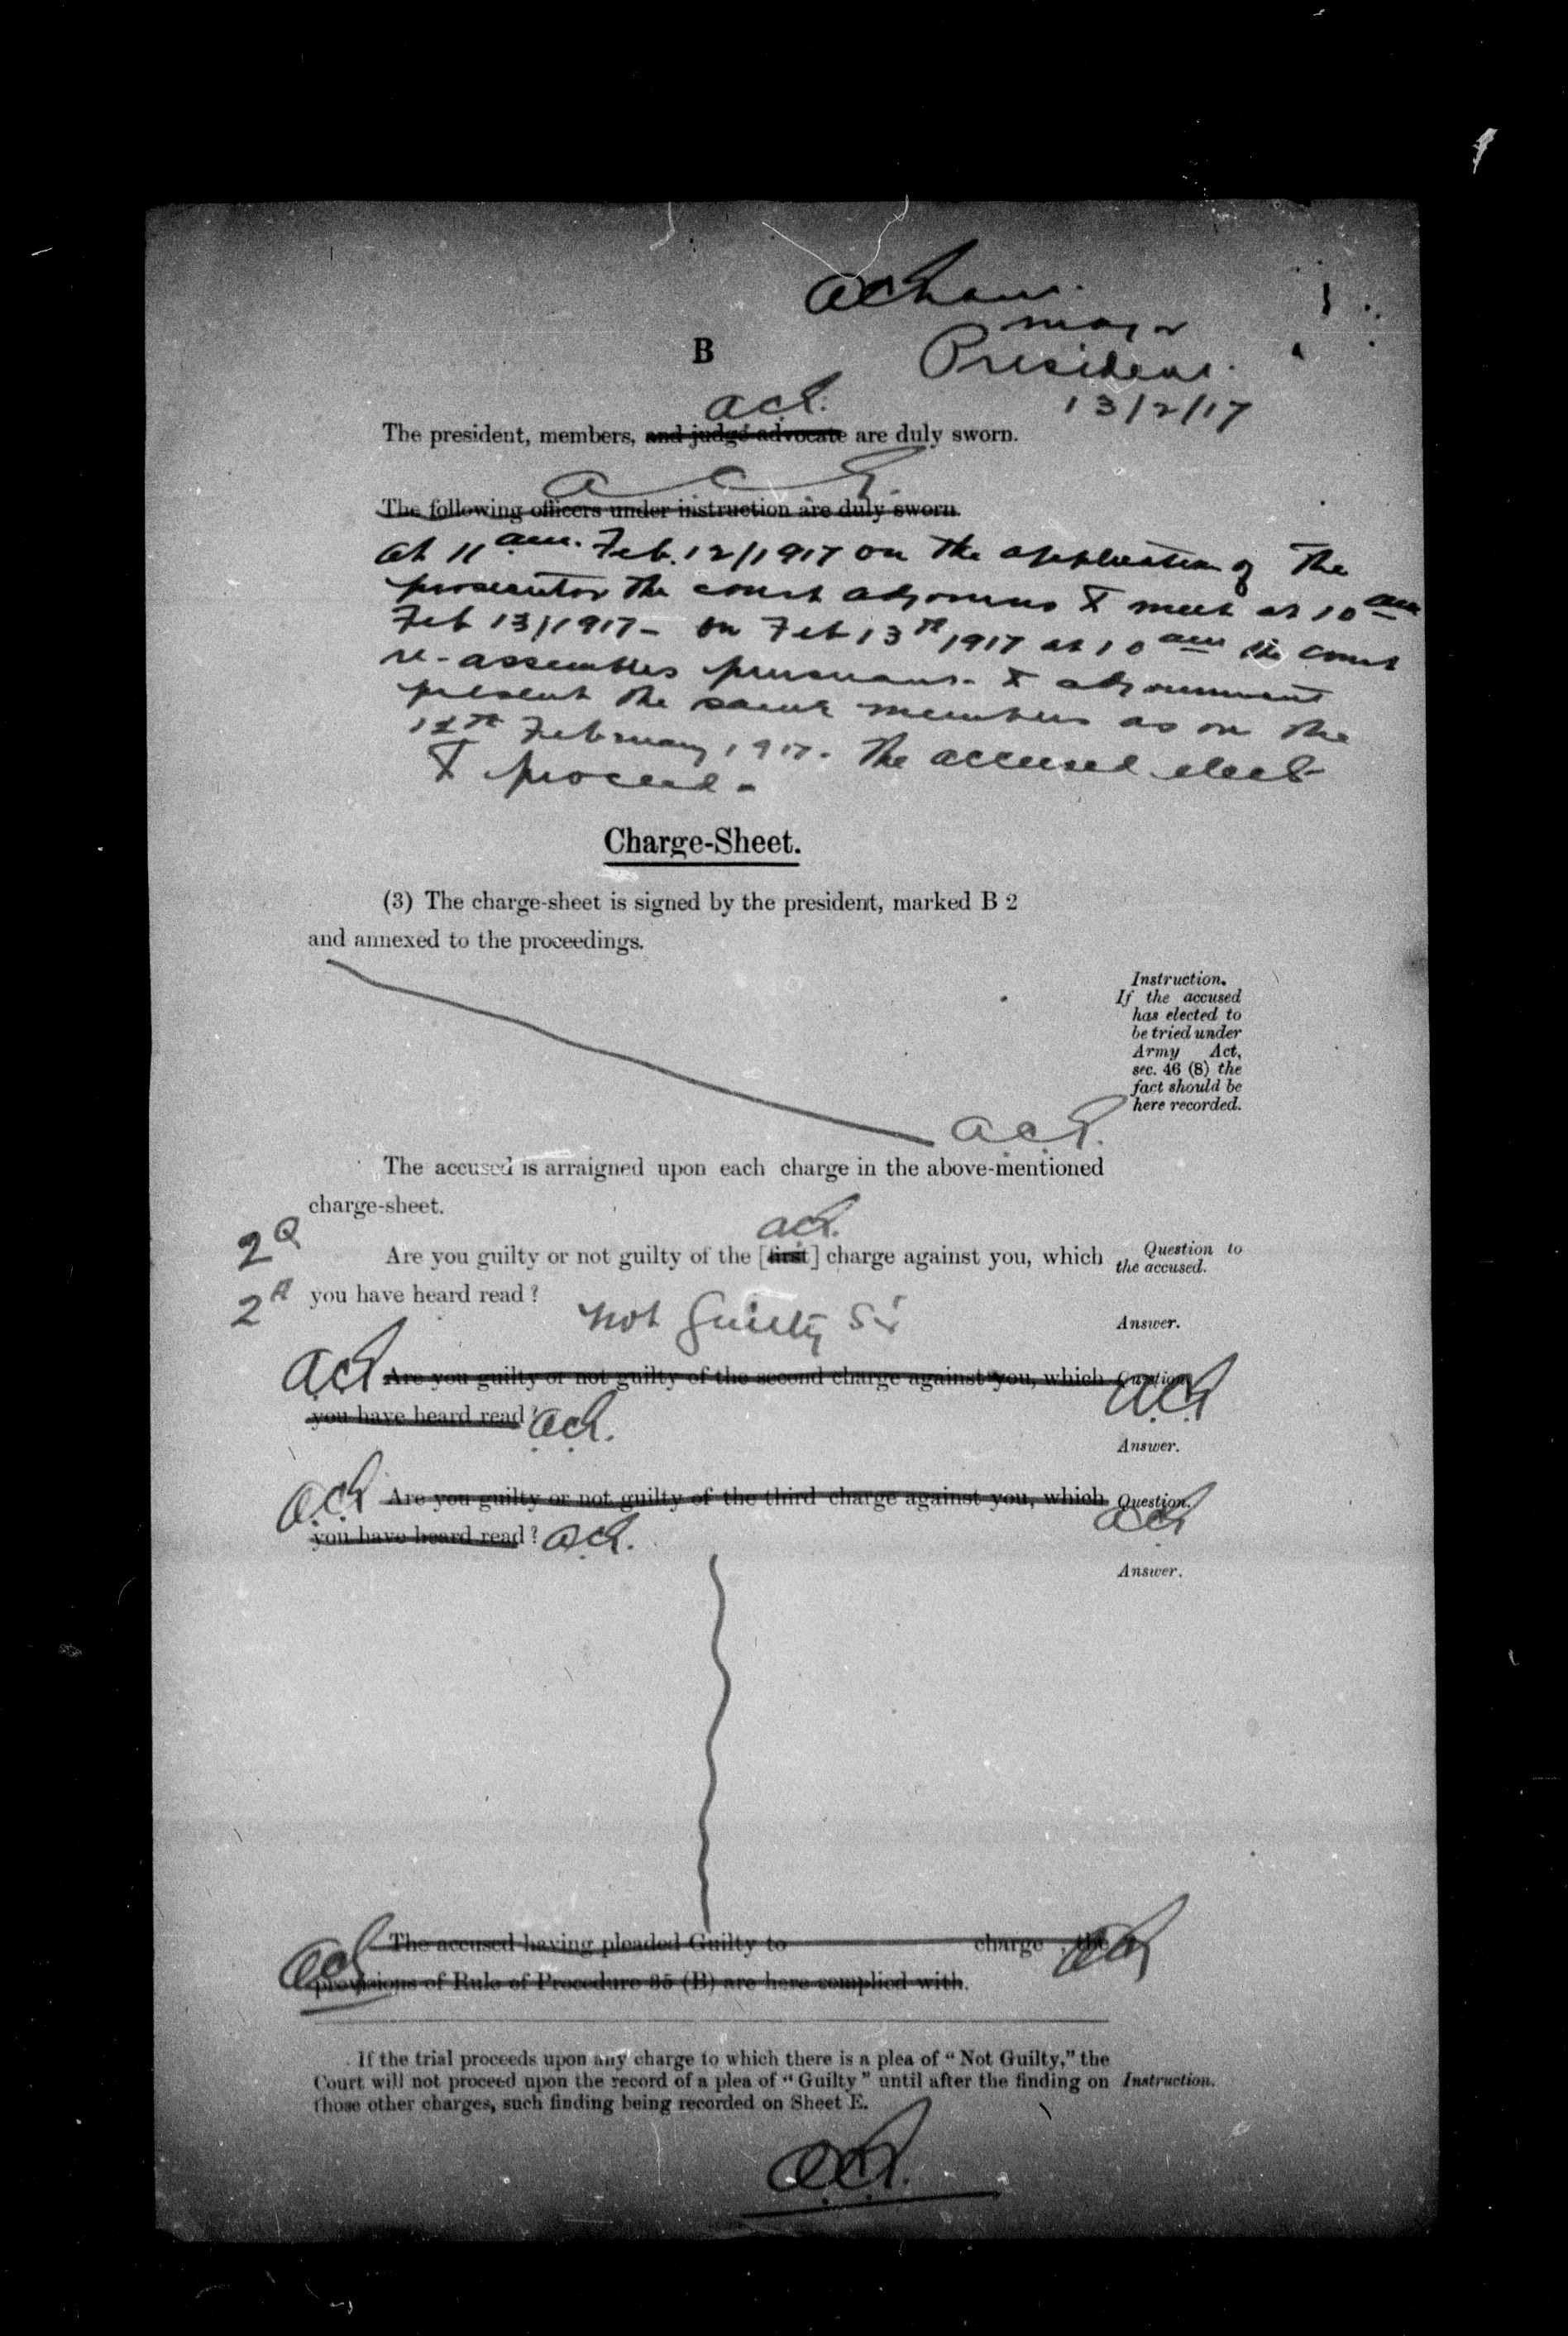 Major
President.
B
13/2/17
The president, members, and judge-advocate are duly sworn.
The following officers under instruction are duly sworn.
At 11 am. Feb. 12/1917 on the application of the
prosecutor the court adjourns to meet at 10 am
Feb 13/1917 - On Feb 13th 1917 at 10 am the court
re-assembles pursuant to adjournment
present the same members as on the
12th February 1917. The accused elect
to proceed -
Charge-Sheet.
(3) The charge-sheet is signed by the president, marked B 2
and annexed to the proceedings.
Instruction.
If the accused
has elected to
be tried under
Army Act,
sec. 46 (8) the
fact should be
here recorded.
The accused is arraigned upon each charge in the above-mentioned
charge-sheet.
2 Q Are you guilty or not guilty of the [first] charge against you, which Question to
the accused.
2 A you have heard read?
Not Guilty Sir Answer.
Are you guilty or not guilty of the second charge against you, which Question.
you have heard read?
Answer.
Are you guilty or not guilty of the third charge against you, which Question.
you have heard read?
Answer.
The accused having pleaded Guilty to charge , the
provisions of Rule of Procedure 35 (B) are here complied with.
If the trial proceeds upon any charge to which there is a plea of "Not Guilty," the
Court will not proceed upon the record of a plea of "Guilty" until after the finding on Instruction.
those other charges, such finding being recorded on Sheet E.